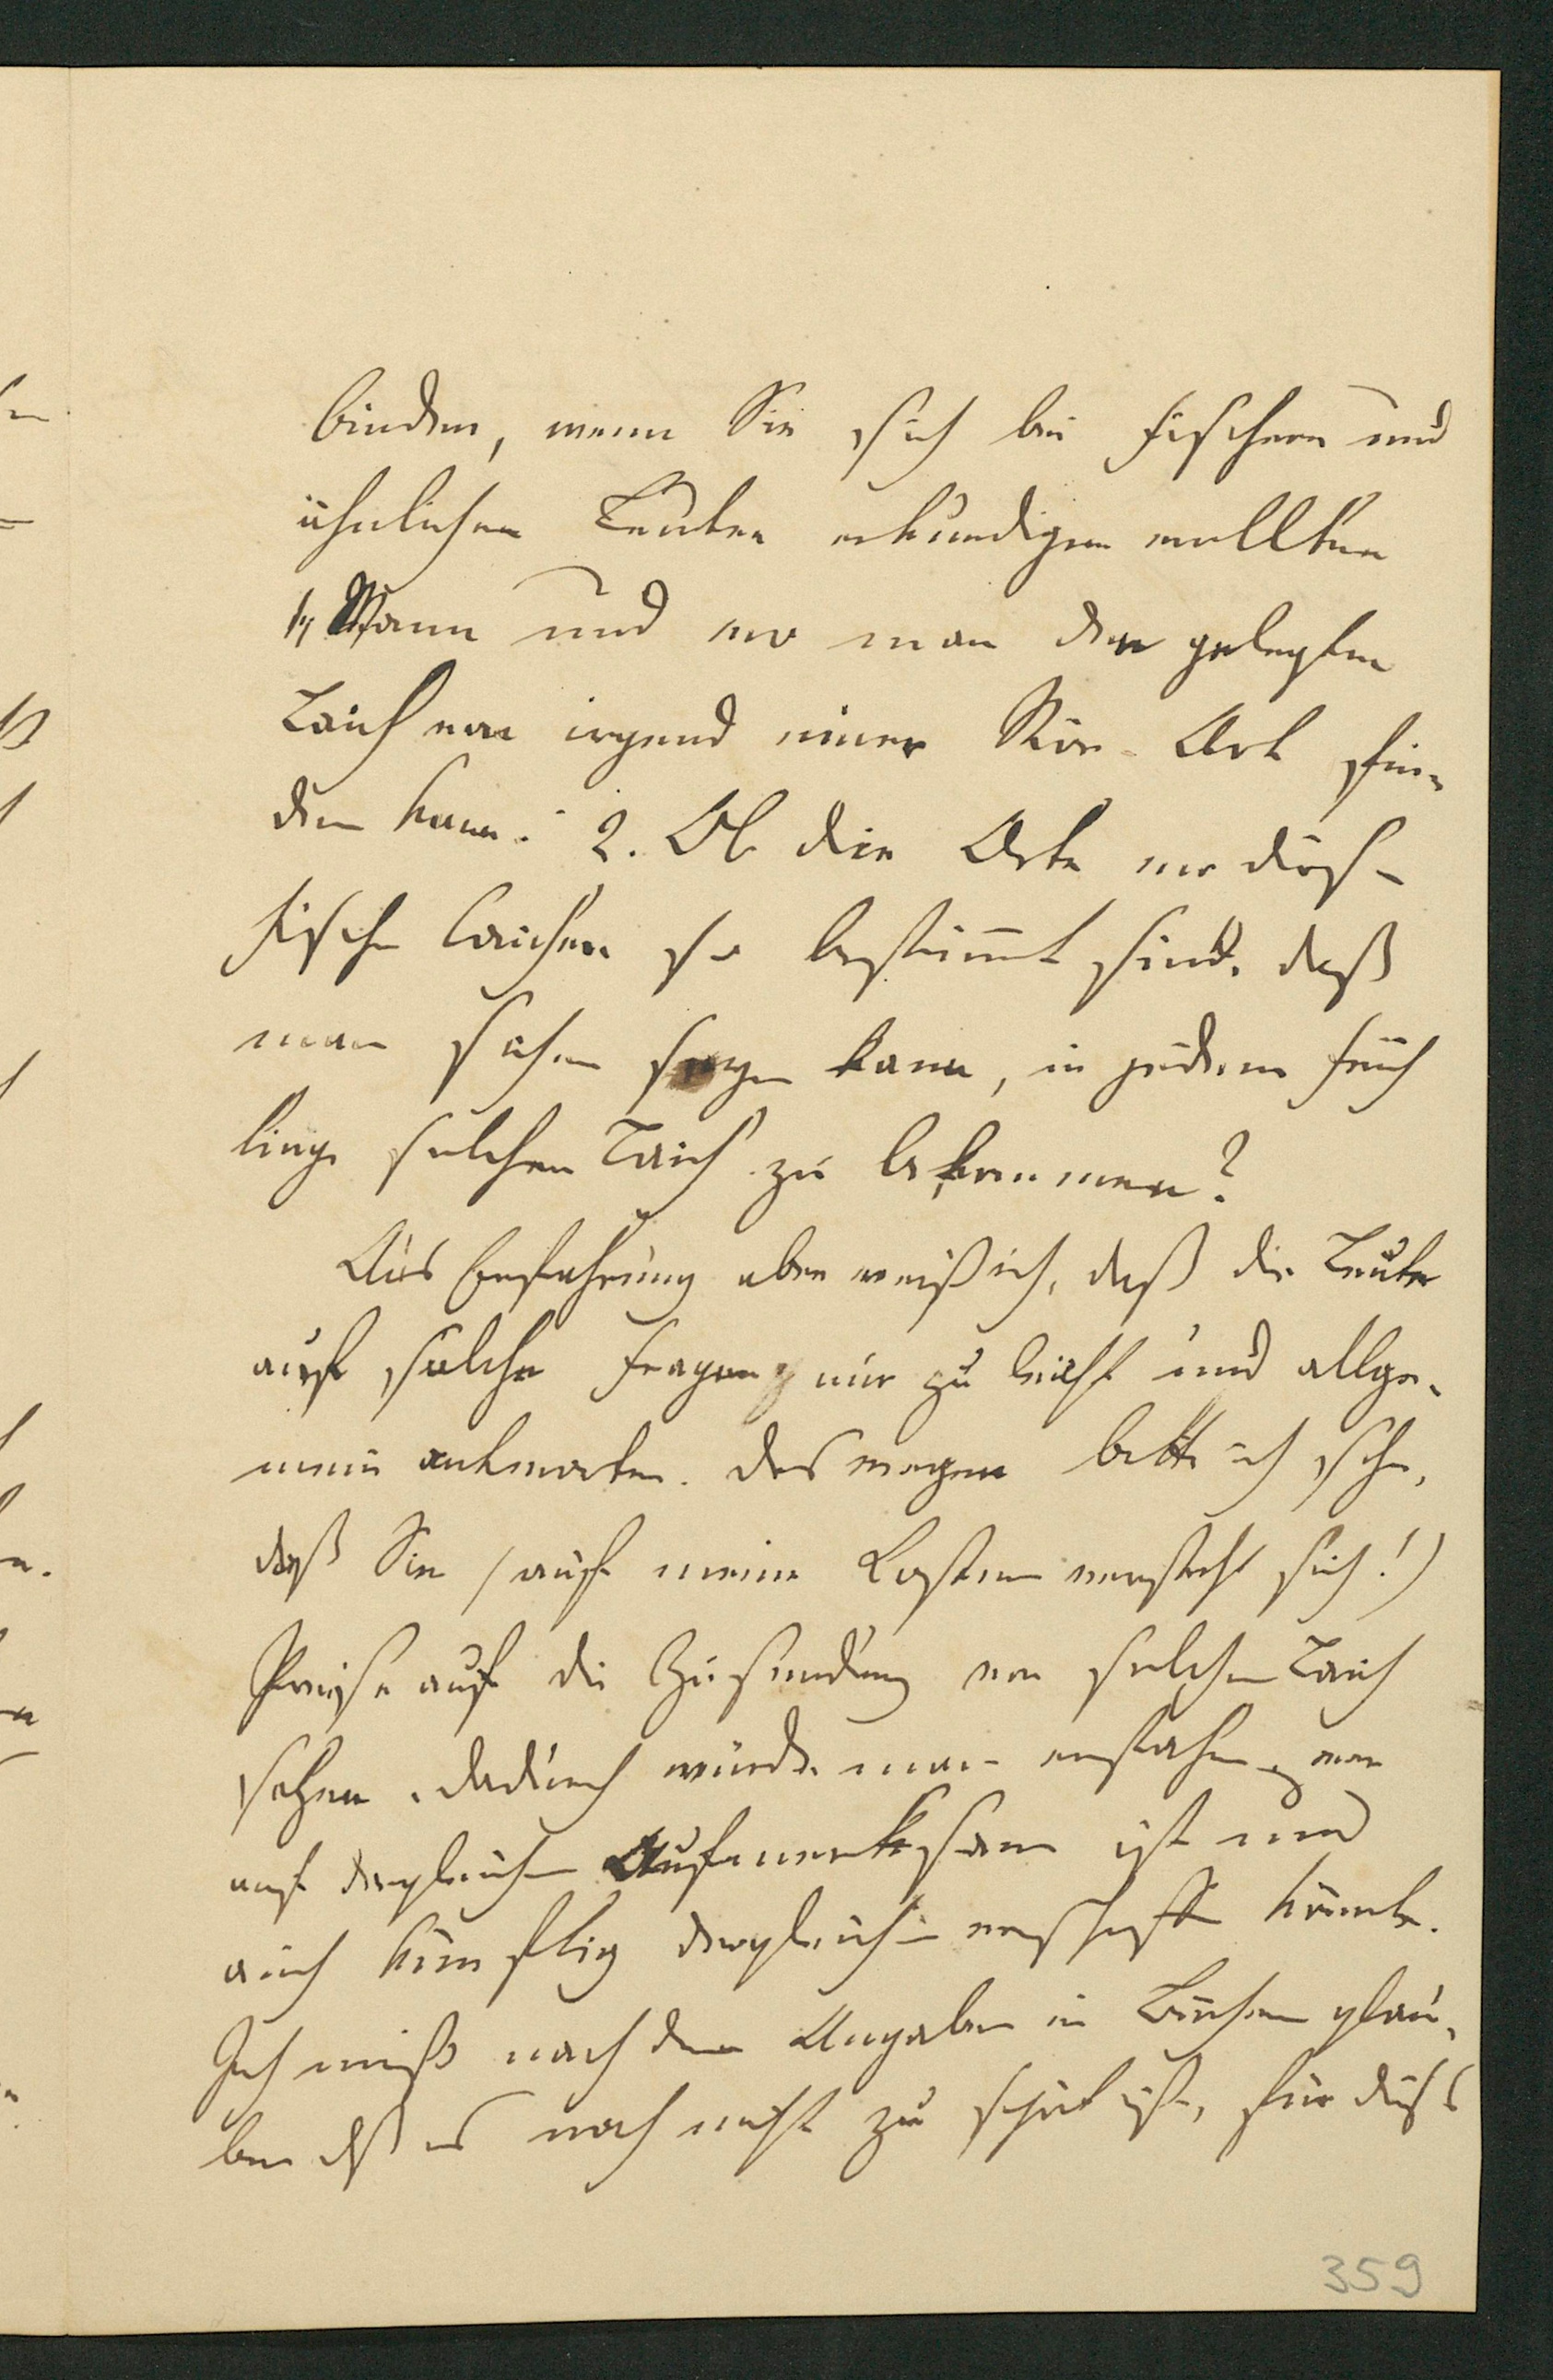 binden, wenn Sie sich bei Fischern und
ähnlichen Leuten erkundigen wollten
1, Wann und wo man den gelegten
Laich von irgend einer Stör-Art fin-
den kann. 2. Ob die Orte wo diese
Fische laichen so bestim̄t sind, daß
man sicher sagen kann, in jedem Früh
ling solchen Laich zu bekommen?
Aus Erfahrung aber weiß ich, daß die Leute
auf solche Fragen nur zu leicht und allge-
mein antworten. Deswegen bitte ich sehr,
daß Sie (auf meine Kosten versteht sich!)
Preise auf die Zusendung von solchem Laich
setzen. Dadurch würde man erfahren, wer
auf dergleichen Aufmerksam ist und
auch künftig dergleichen verschaffen könnte.
Ich muß nach den Angaben in Büchern glau-
ben dß es noch nicht zu spät ist, für dieses
359